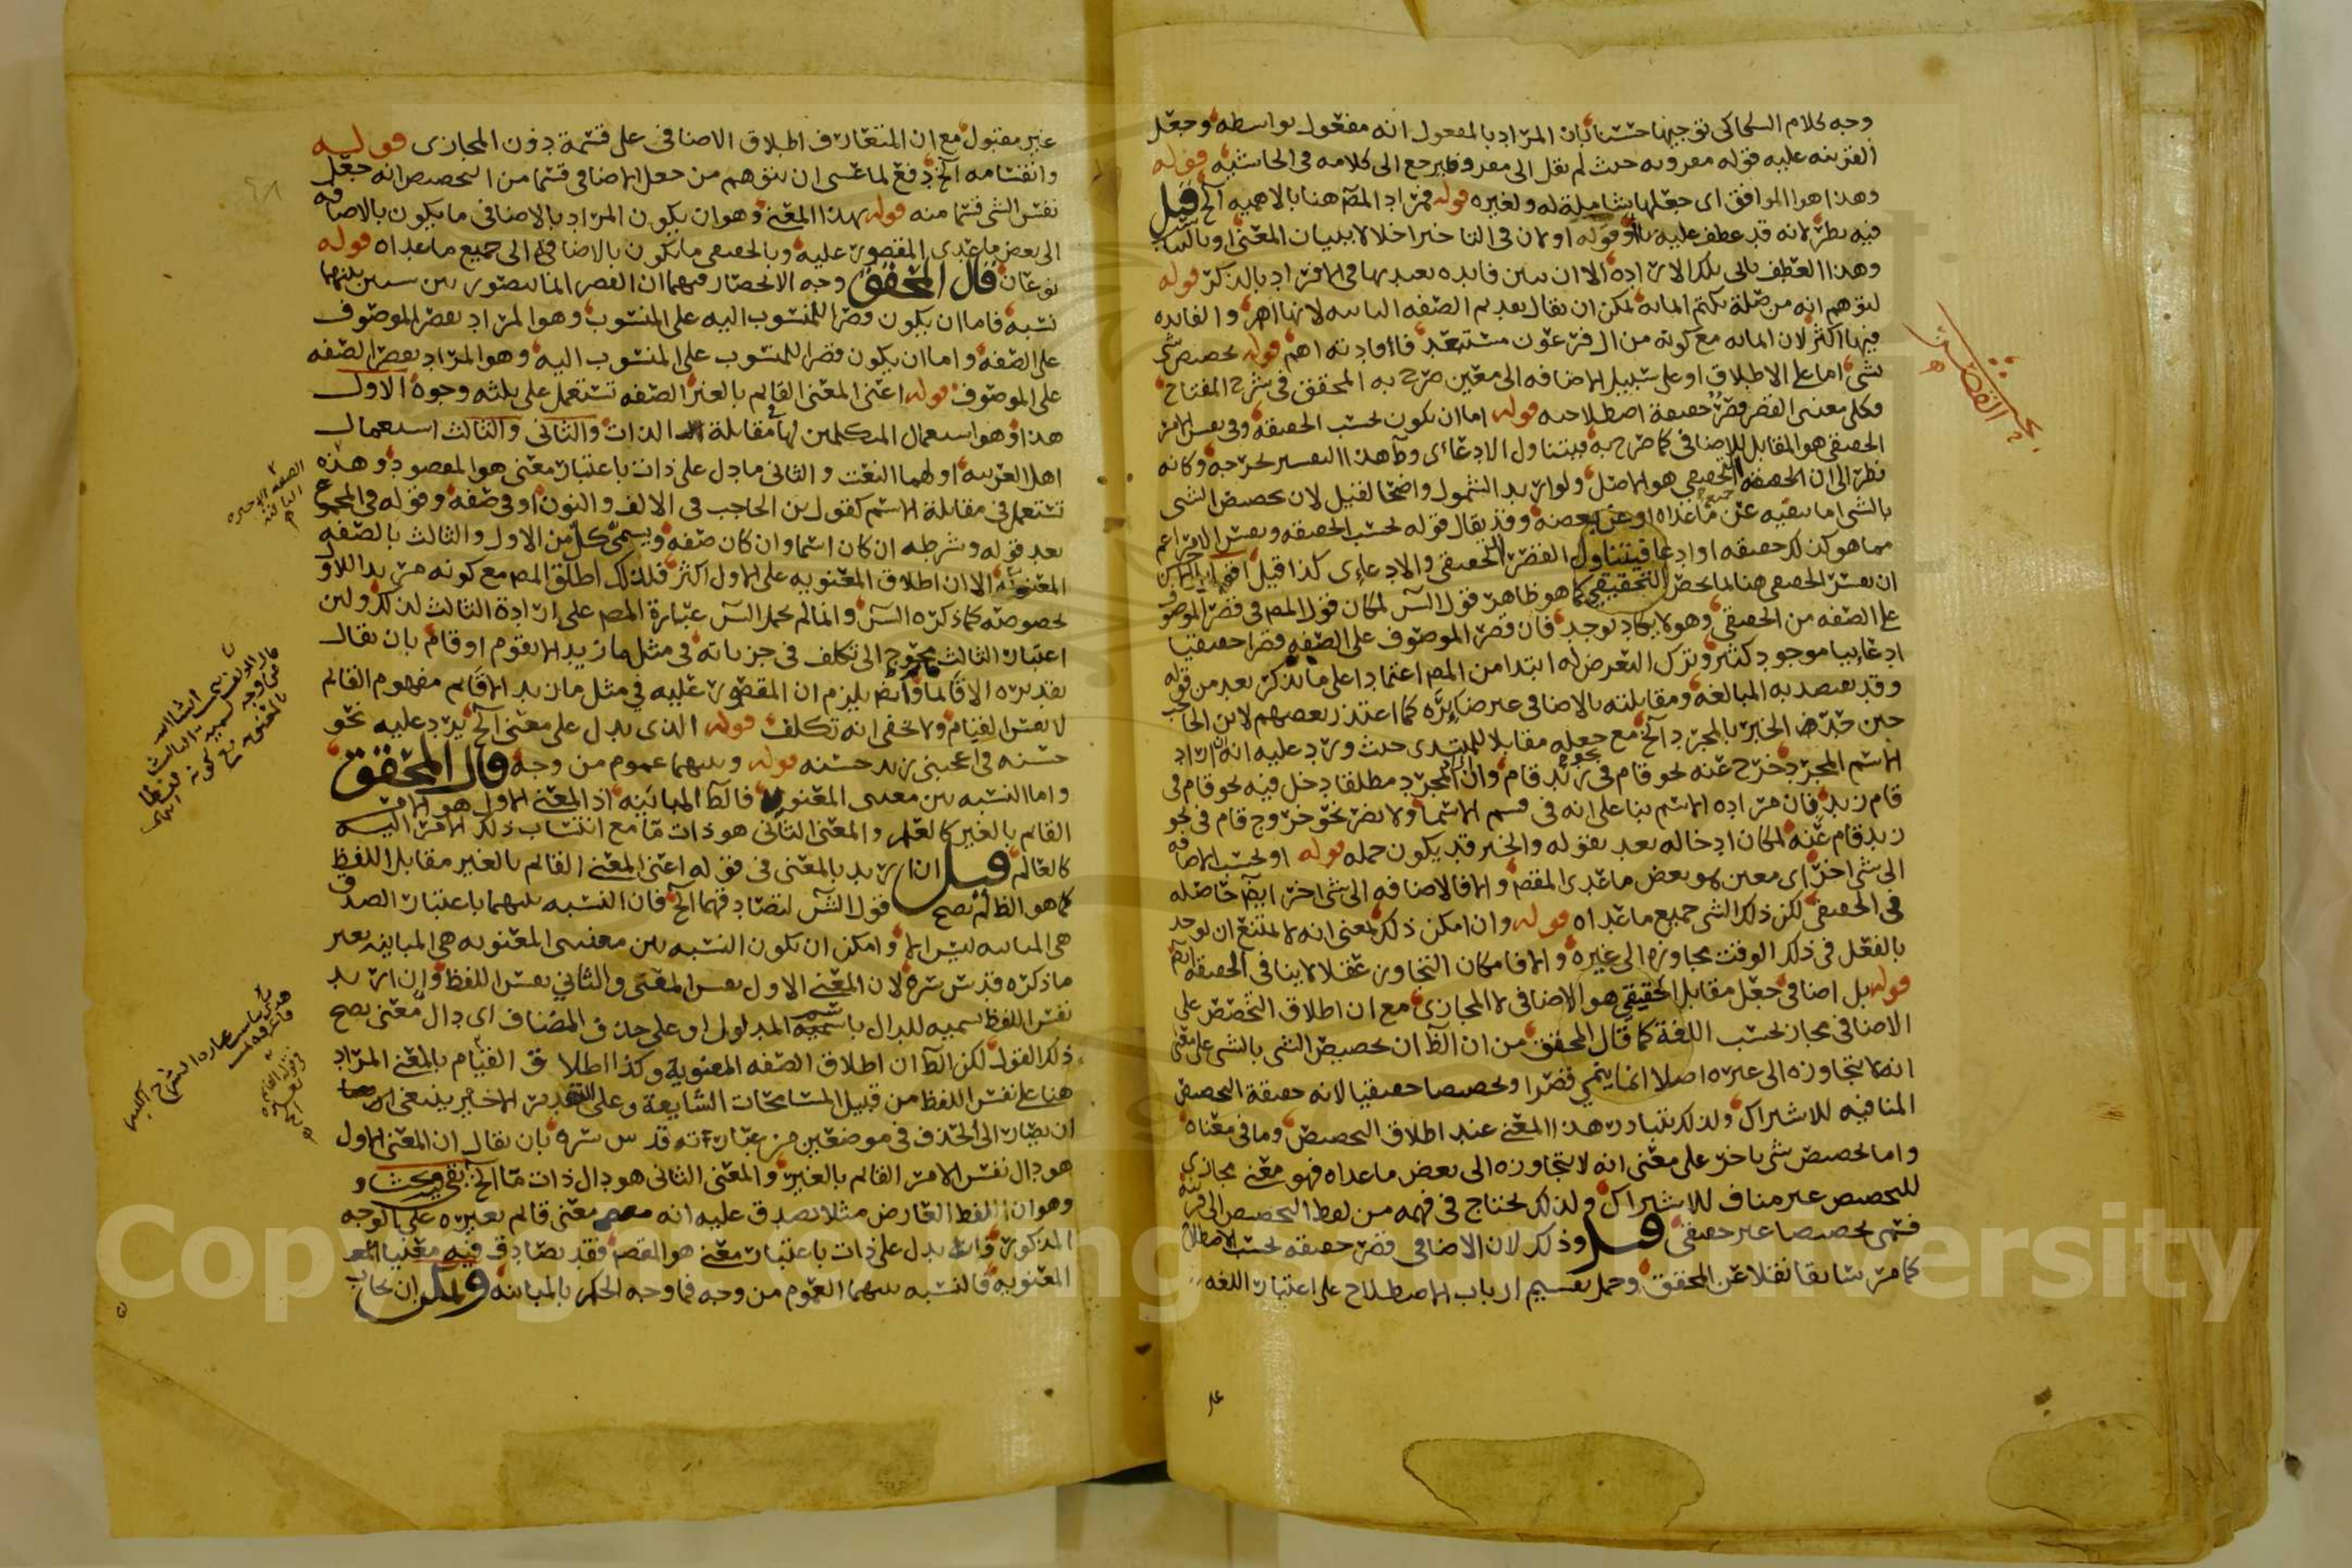 وجه كلام السكاكى توجيها حسنا بان المراد بالمفعول انه مفعول بواسطه وجعل
القرينه عليه قوله معرو به حيث لم يقل الى معروف يرجع الى كلامه فى الحاشيه قوله
وهذا هو الموافق اى جعلها شاملة له ولغيره قوله فمراد المص هنا بالاهميه الخ قيل
فيه نظر لانه قد عطف عليه باو قوله اولان فى التاخير اخلالا ببيان المعنى او بالتناسب
وهذا العطف يابى تلك الارادة الا ان يبين فايده بعد بها فى افراد بالذكر قوله
لتوهم انه من صلة يكتم ايمانه يمكن ان يقال تقديم الصفه الثانيه لانها اهم والفايده
فيها اكثر لان ايمانه مع كونه من ال فرعون مستبعد فافادته اهم قوله تخصيص شى
بشى اما على الاطلاق او على سبيل الاضافه الى معين صرح به المحقق فى شرح المفتاح
وكلى معنيى القصر قصر حقيقة اصطلاحيه قوله اما ان يكون بحسب الحقيقه وفى نفس الامر
الحقيقى هو المقابل للاضافى كما صرح به فيتناول الادعاى وظاهر هذا التفسير يخرجه وكانه
نظر الى ان الحقيقه التحقيقى هو الاصل ولو اريد الشمول واضحا لقيل لان تخصيص الشى
بالشى اما بنفيه عن جميع ما عداه او عن بعضه وقد يقال قوله بحسب الحقيقه ونفس الامر اعم
مما هو كذلك حقيقه او ادعا فيتناول القصر الحقيقى والادعاى كذا قيل
ان نفس الحقيقى هنا لما يخص التحقيقى كما هو ظاهر قول الش لمكان قول المص فى قصر الموصوف
على الصفه من الحقيقى وهو لا يكاد يوجد فان قصر الموصوف على الصفه قصرا حقيقيا
ادعاييا موجود كثير وترك التعرض له ابتدا من المص اعتمادا على ما يذكر بعد من قوله
وقد يقصد به المبالغه ومقابلته بالاضافى غير ضايره كما اعتذر بعضهم لابن الحاجب
حين خص الخبر بالمجرد الخ مع جعله مقابلا للمبتدى حيث ورد عليه انه ان اراد
الاسم المجرد خرج عنه نحو قام فى زيد قام وان المجرد مطلقا دخل فيه نحو قام فى
قام زيد فان مراده الاسم بنا على انه فى قسم الاسما ولا يضر نحو خروج قام فى نحو
زيد قام عنه لمكان ادخاله بعد بقوله والخبر قد يكون جمله قوله او بحسب الاضافه
الى شى اخر اى معين هو بعض ما عدى المقص والا فالاضافه الى شى اخر ايض حاصله
فى الحقيقى لكن ذلك الشى جميع ما عداه قوله وان امكن ذلك بمعنى انه لا يمتنع ان يوجد
بالفعل فى ذلك الوقت مجاوزه الى غيره والا فامكان التجاوز عقلا لا ينافى الحقيقه ايض
قوله بل اضافى جعل مقابل الحقيقى هو الاضافى لا المجازى مع ان اطلاق التخصص على
الاضافى مجاز بحسب اللغة كما قال المحقق من ان الظ ان تخصيص الشى بالشى على معنى
انه لا يتجاوزه الى غيره اصلا انما يسمى قصرا وتخصيصا حقيقيا لانه حقيقة التخصيص
المنافيه للاشتراك ولذلك يتبادر هذا المعنى عند اطلاق التخصيص وما فى معناه
واما تخصيص شى باخر على معنى انه لا يتجاوزه الى بعض ما عداه فهو معنى مجازى
للتخصيص غير مناف للاشتراك ولذلك يحتاج فى فهمه من لفظ التخصيص الى قرينه
فسمى تخصيصا غير حقيقى قيل وذلك لان الاضافى قصر حقيقه بحسب الاصطلاح
كما مر سابقا نقلا عن المحقق وحمل تقسيم ارباب الاصطلاح على اعتبار اللغه
بحث القصر
غير مقبول مع ان المتعارف اطلاق الاضافى على قسمة دون المجازى قوله
وانقسامه الخ دفع لما عسى ان يتوهم من جعل الاضافى قسما من التخصيص انه جعل
نفس الشى قسما منه قوله بهذا المعنى وهو ان يكون المراد بالاضافى ما يكون بالاضافه
الى بعض ما عدى المقصور عليه وبالحقيقى ما يكون بالاضافة الى جميع ما عداه قوله
نوعان قال المحقق وجه الانحصار فيهما ان القصر انما يتصور بين شيين بينهما
نسبه فاما ان يكون قصرا للمنسوب اليه على المنسوب وهو المراد بقصر الموصوف
على الصفه واما ان يكون قصرا للمنسوب على المنسوب اليه وهو المراد بقصر الصفه
على الموصوف قوله اعنى المعنى القايم بالغير الصفه تستعمل على ثلثه وجوه الاول
هذا وهو استعمال المتكلمين لها فى مقابلة الذات والثانى والثالث استعمال
اهل العربيه اولهما النعت والثانى ما دل على ذات باعتبار معنى هو المقصود وهذه
تستعمل فى مقابلة الاسم كقول ابن الحاجب فى الالف والنون او فى صفه وقوله فى الجمع
بعد قوله وشرطه ان كان اسما وان كان صفه ويسمى كل من الاول والثالث بالصفه
المعنويه الا ان اطلاق المعنويه على الاول اكثر فلذلك اطلق المص مع كونه مريدا للاول
بخصوصه كما ذكره الش وانما لم يحمل الش عبارة المص على ارادة الثالث لذلك ولان
اعتبار الثالث محوج الى تكلف فى جزياته فى مثل ما زيد الا يقوم او قام بان يقال
تقديره الا قايما وايض يلزم ان المقصور عليه فى مثل ما زيد الا قايم مفهوم القايم
لا نفس القيام ولا يخفى انه تكلف قوله الذى يدل على معنى الخ يرد عليه نحو
حسنه فى اعجبنى زيد حسنه قوله وبينهما عموم من وجه قال المحقق
واما النسبه بين معنيى المعنويه فالظ المباينه اذ المعنى الاول هو الامر
القايم بالغير كالعلم والمعنى الثانى هو ذات ما مع انتساب ذلك الامر اليه
كالعالم قيل ان اريد بالمعنى فى قوله اعنى المعنى القايم بالغير مقابل اللفظ
كما هو الظ لم يصح قول الش لتصادقهما الخ فان النسبه بينهما باعتبار الصدق
هى المباينه ليس الا وامكن ان يكون النسبه بين معنيى المعنويه هى المباينه بغير
ما ذكره قدس سره لان المعنى الاول نفس المعنى والثانى نفس اللفظ وان اريد
نفس اللفظ تسميه للدال باسم المدلول او على حذف المضاف اى دال معنى يصح
ذلك القول لكن الظ ان اطلاق الصفه المعنوية وكذا اطلاق القيام بالمعنى المراد
هنا على نفس اللفظ من قبيل المسامحات الشايعة وعلى التقدير الاخير ينبغى ايضا
ان يصار الى الحذف فى موضعين من عباراته قدس سره بان يقال ان المعنى الاول
هو دال نفس الامر القايم بالغير والمعنى الثانى هو دال ذات ما الخ بقى بحث
وهو ان لفظ العارض مثلا يصدق عليه انه معنى قايم بغيره على الوجه
المذكور وانه يدل على ذات باعتبار معنى هو المقص فقد تصادق فيه معنيا
المعنويه فالنسبه بينهما العموم من وجه فما وجه الحكم بالمباينه ويمكن ان يجاب